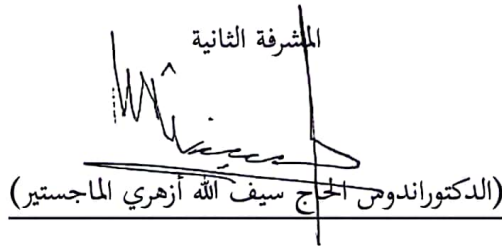 المشرفة الثانية
(الدكتوراندوس الحاج سيف الله أزهري الماجستير)